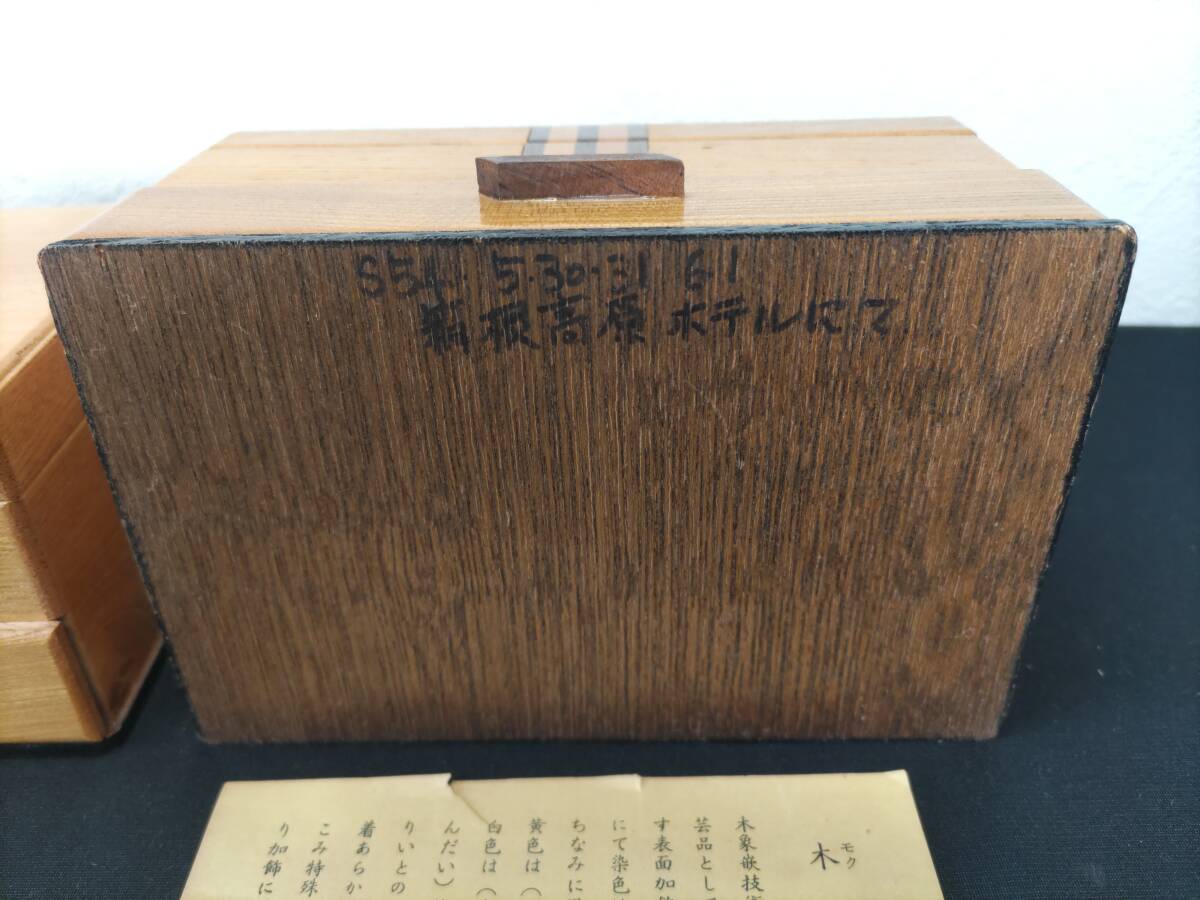 S54. 5.30.31 6.1
箱根高原ホテルにて
木
モク
木象嵌技
芸品とし
す表面加
にて染色
ちなみに
黄色は（
白色は（
んだい）
りいとの
着あらか
こみ特殊
り加飾に